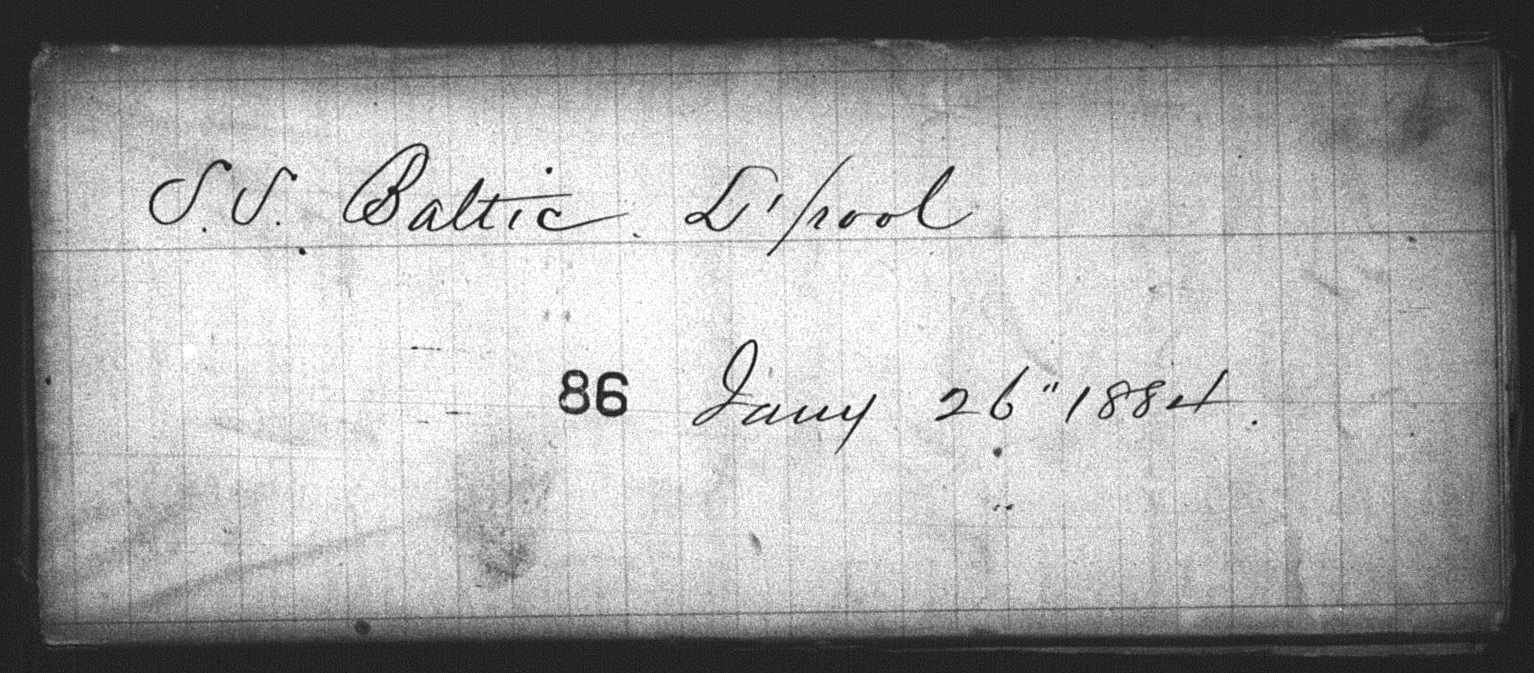 S.S. Baltic. L'pool
86 Jany 26" 1884.